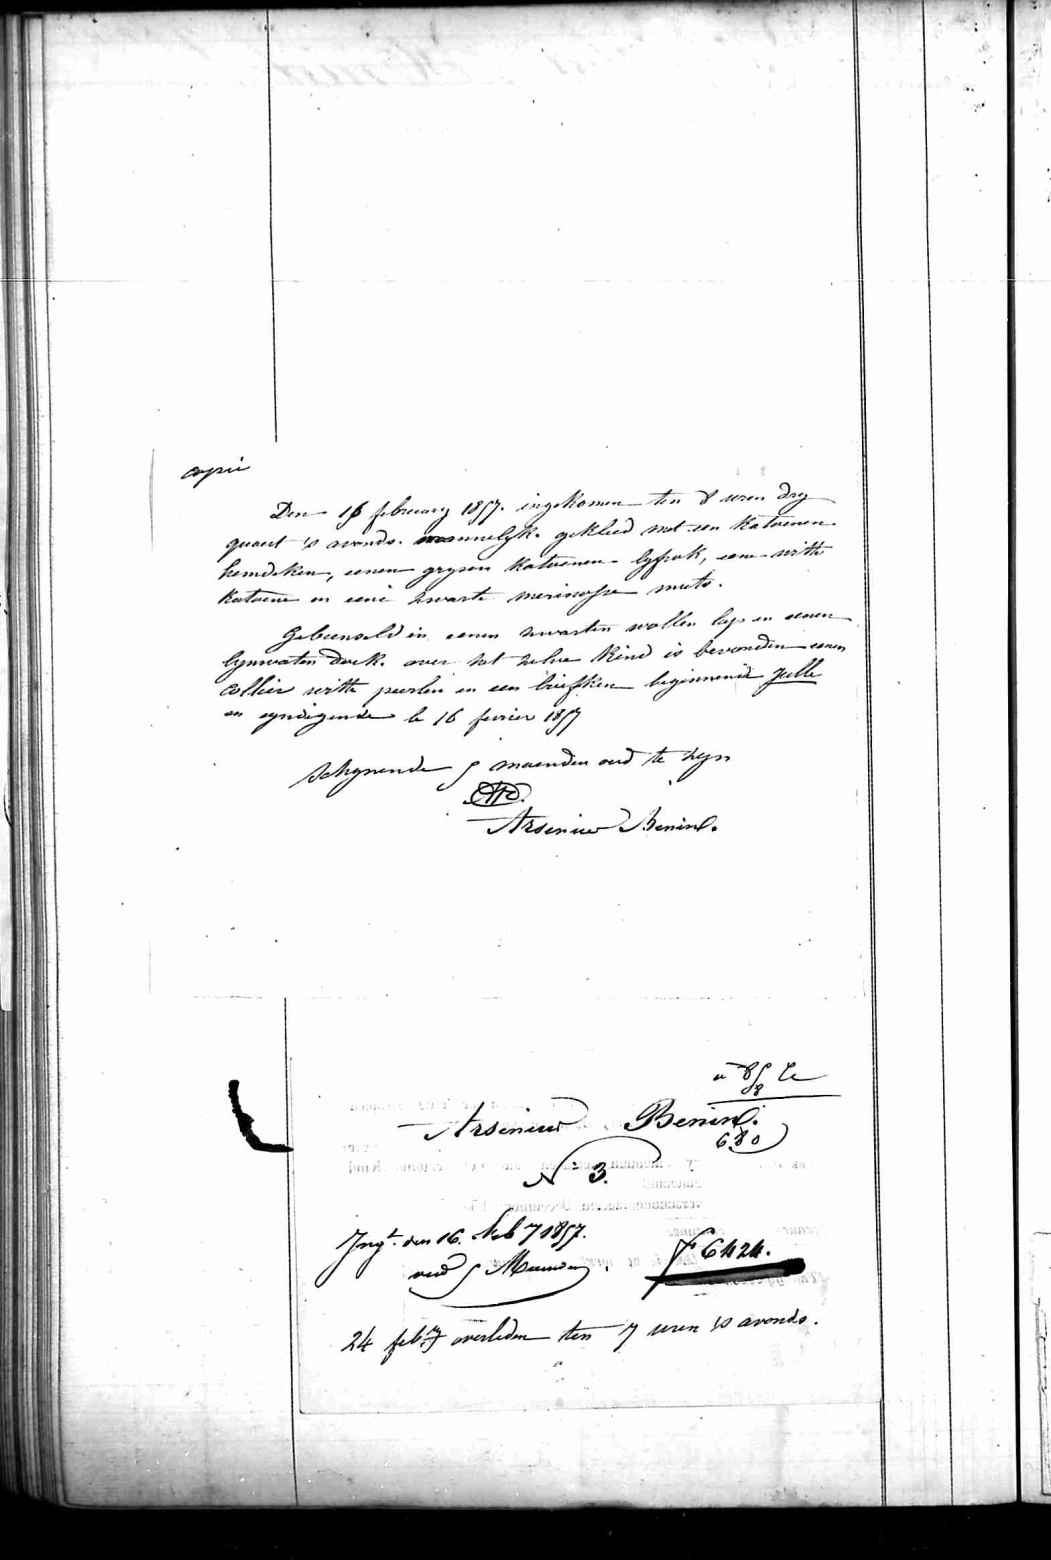 copie
Den 16 february 1857. ingekomen ten 8 uren dry
quaert 's avonds. mannelyk. gekleed met een katoenen
hemdeken, eenen grysen katoenen lyfrok, eene witte
katoene en eene zwarte merinosse muts.
Gebunseld in eenen zwarten wollen lap en eenen
lynwaten doek. over het zelve kind is bevonden eenen
collier witte peerlen en een briefken beginnende
en eyndigende le 16 fevrier 1857
schynende 5 maenden oud te zyn
Arsenius Benind.
Arsenius Benind.
680
N 3.
Ingt. den 16. feb 7 1857.
oud 5 Maenden. F 6424.
24 feb.y overleden ten 7 uren 's avonds.